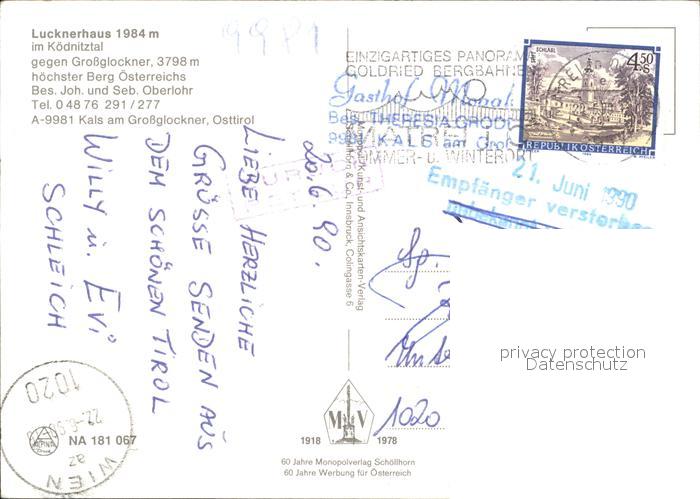 Lucknerhaus 1984 m
im Ködnitztal
gegen Großglockner, 3798 m
höchster Berg Österreichs
Bes. Joh. und Seb. Oberlohr
Tel. 0 48 76 291 / 277
A-9981 Kals am Großglockner, Osttirol
9981
20.6.90.
LIEBE HERZLICHE
GRÜSSE SENDEN AUS
DEM SCHÖNEN TIROL
WILLY u. EVi
SCHLEICH
EINZIGARTIGES PANORAMA
GOLDRIED BERGBAHNE
SOMMER- u. WINTERORT
Gasthof
Bes. THERESIA GRODE
KALS am Groß
SCHLÄGL
4.50
S
REPUBLIK ÖSTERREICH
21. Juni 1990
Empfänger verstorben
Kunst- und Ansichtskarten-Verlag
& Co, Innsbruck, Colingasse 6
1020
1020
22.-6.90
WIEN
NA 181 067
M V
1918 1978
60 Jahre Monopolverlag Schöllhorn
60 Jahre Werbung für Österreich
privacy protection
Datenschutz